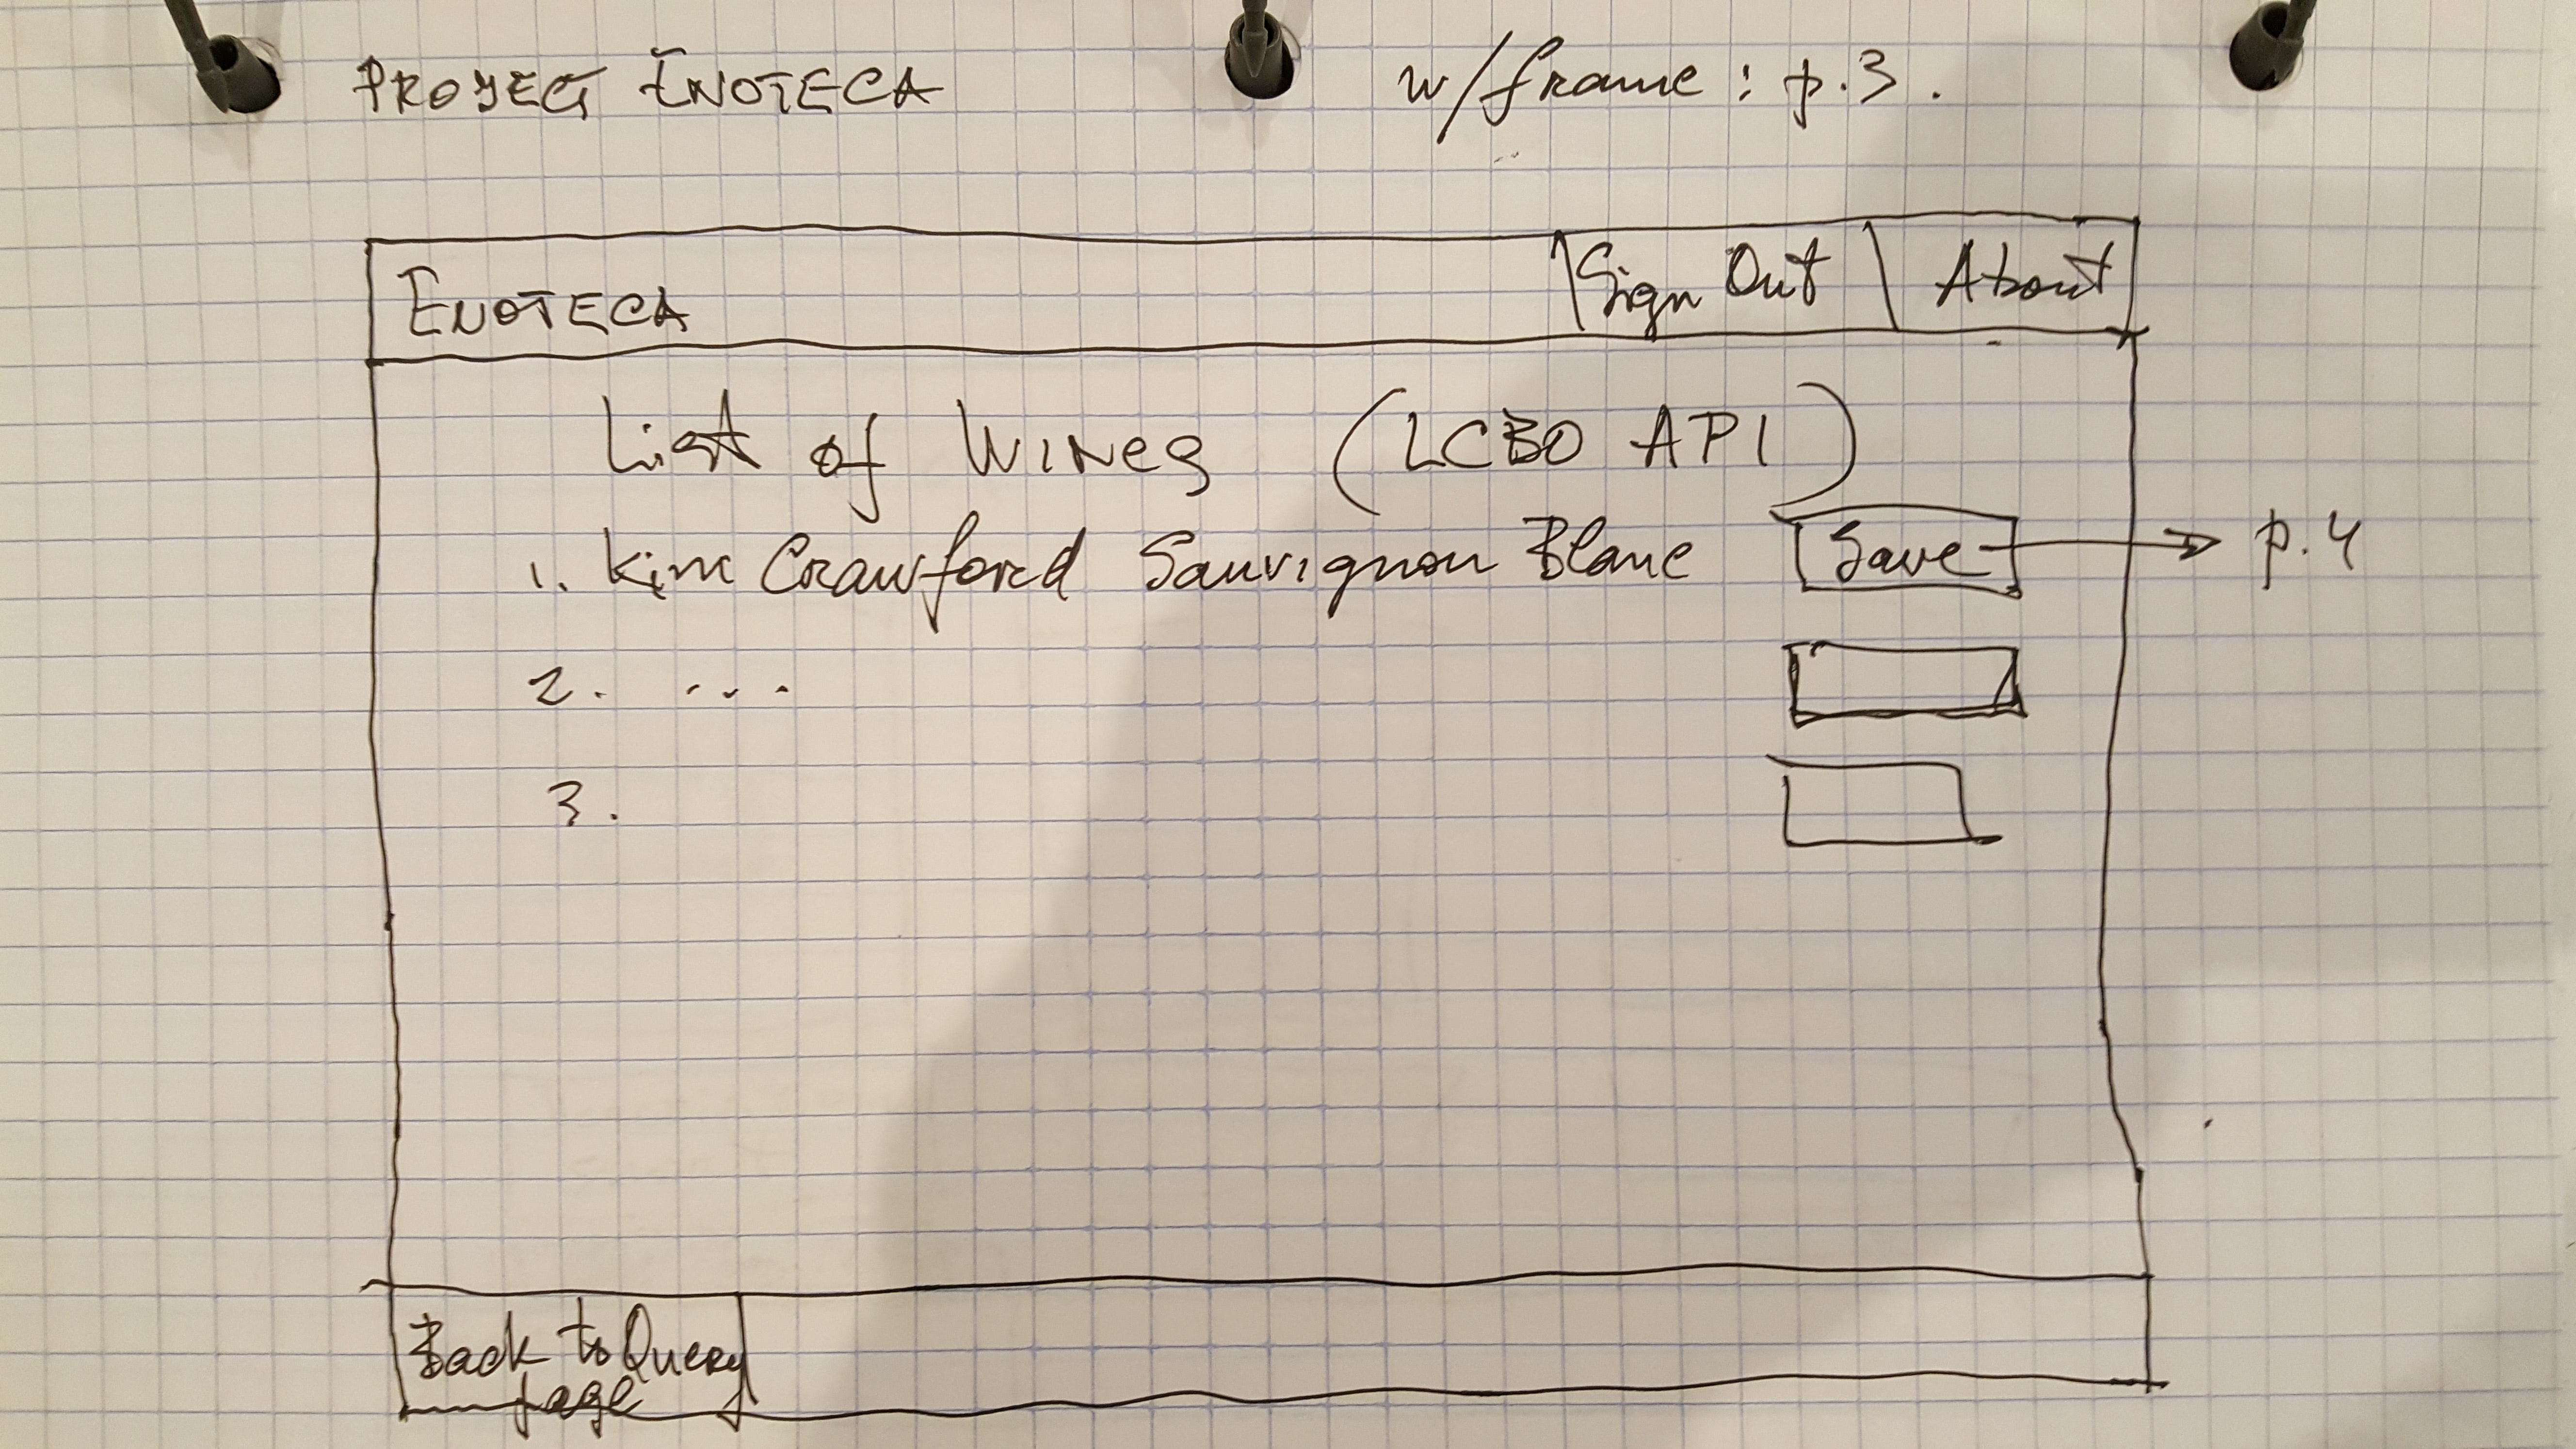 PROJECT ENOTECA w/frame: p.3.
ENOTECA Sign Out About
List of Wines (LCBO API)
1. Kim Crawford Sauvignon Blanc Save → p.4
2. ...
3.
Back to Query
page